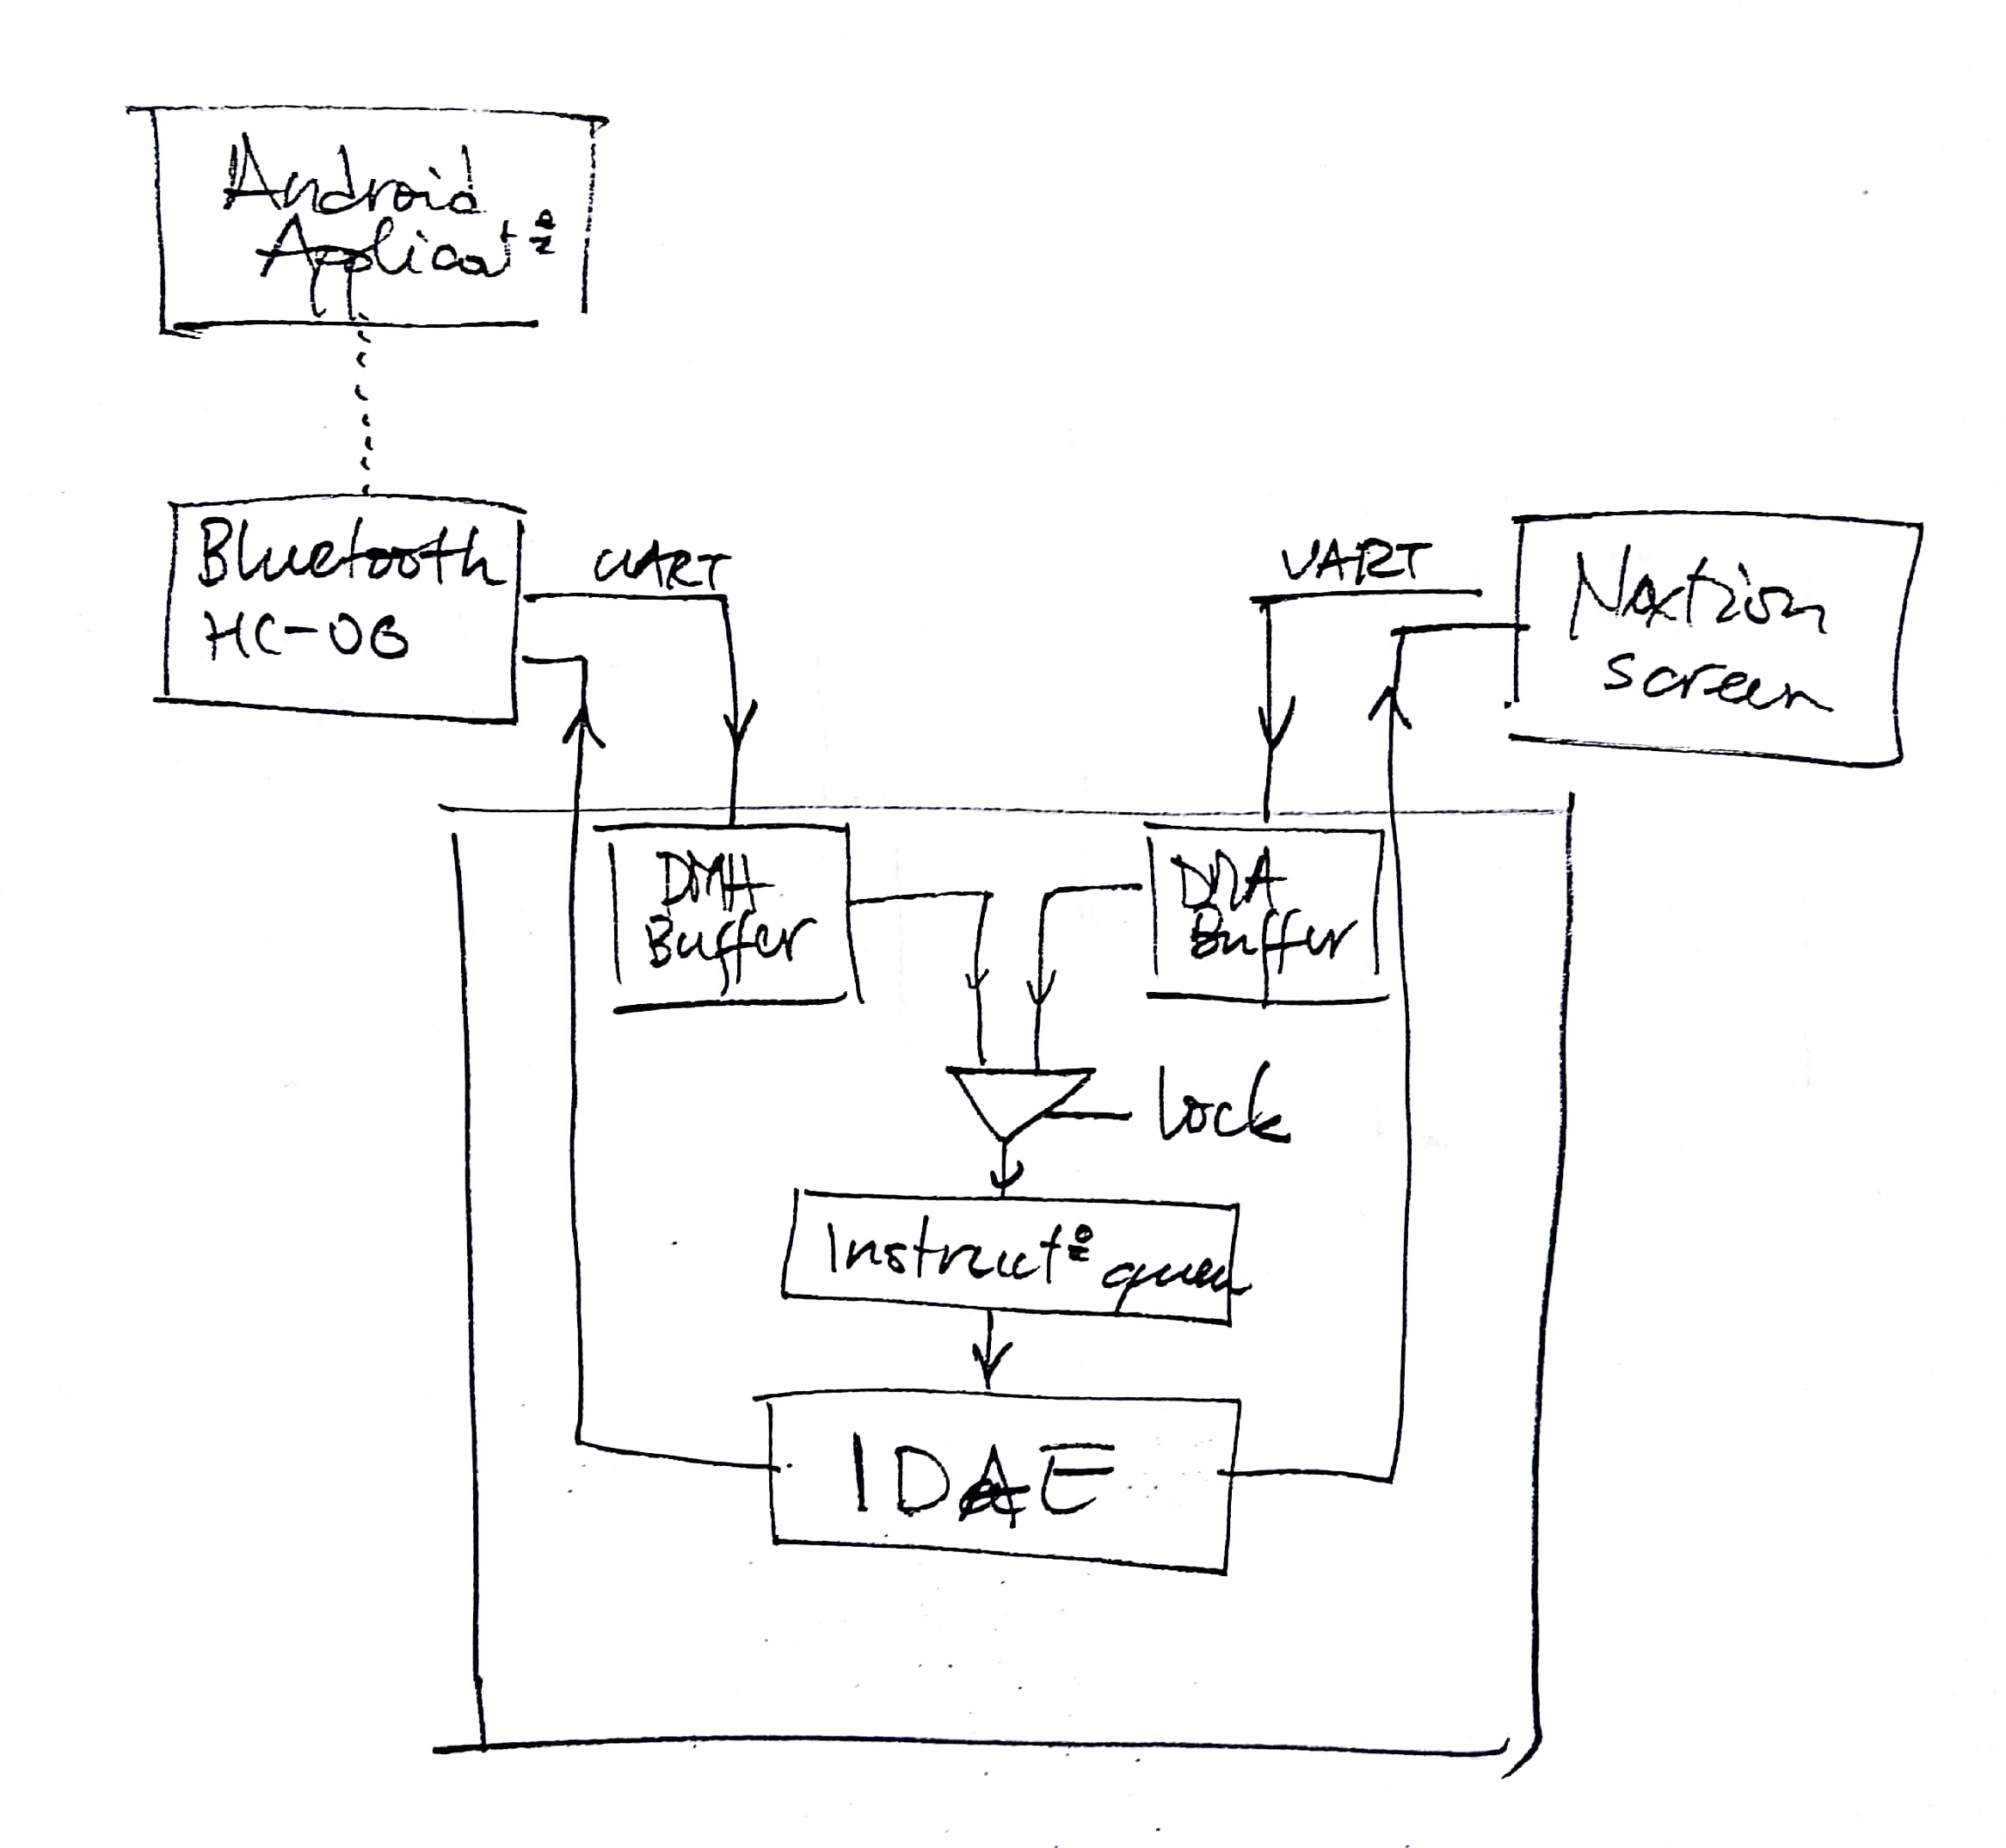 Android
Applicat°
Bluetooth
HC-06
UART
UART
Nextion
screen
DMA
Buffer
DMA
Buffer
lock
Instruct° queu
IDAE